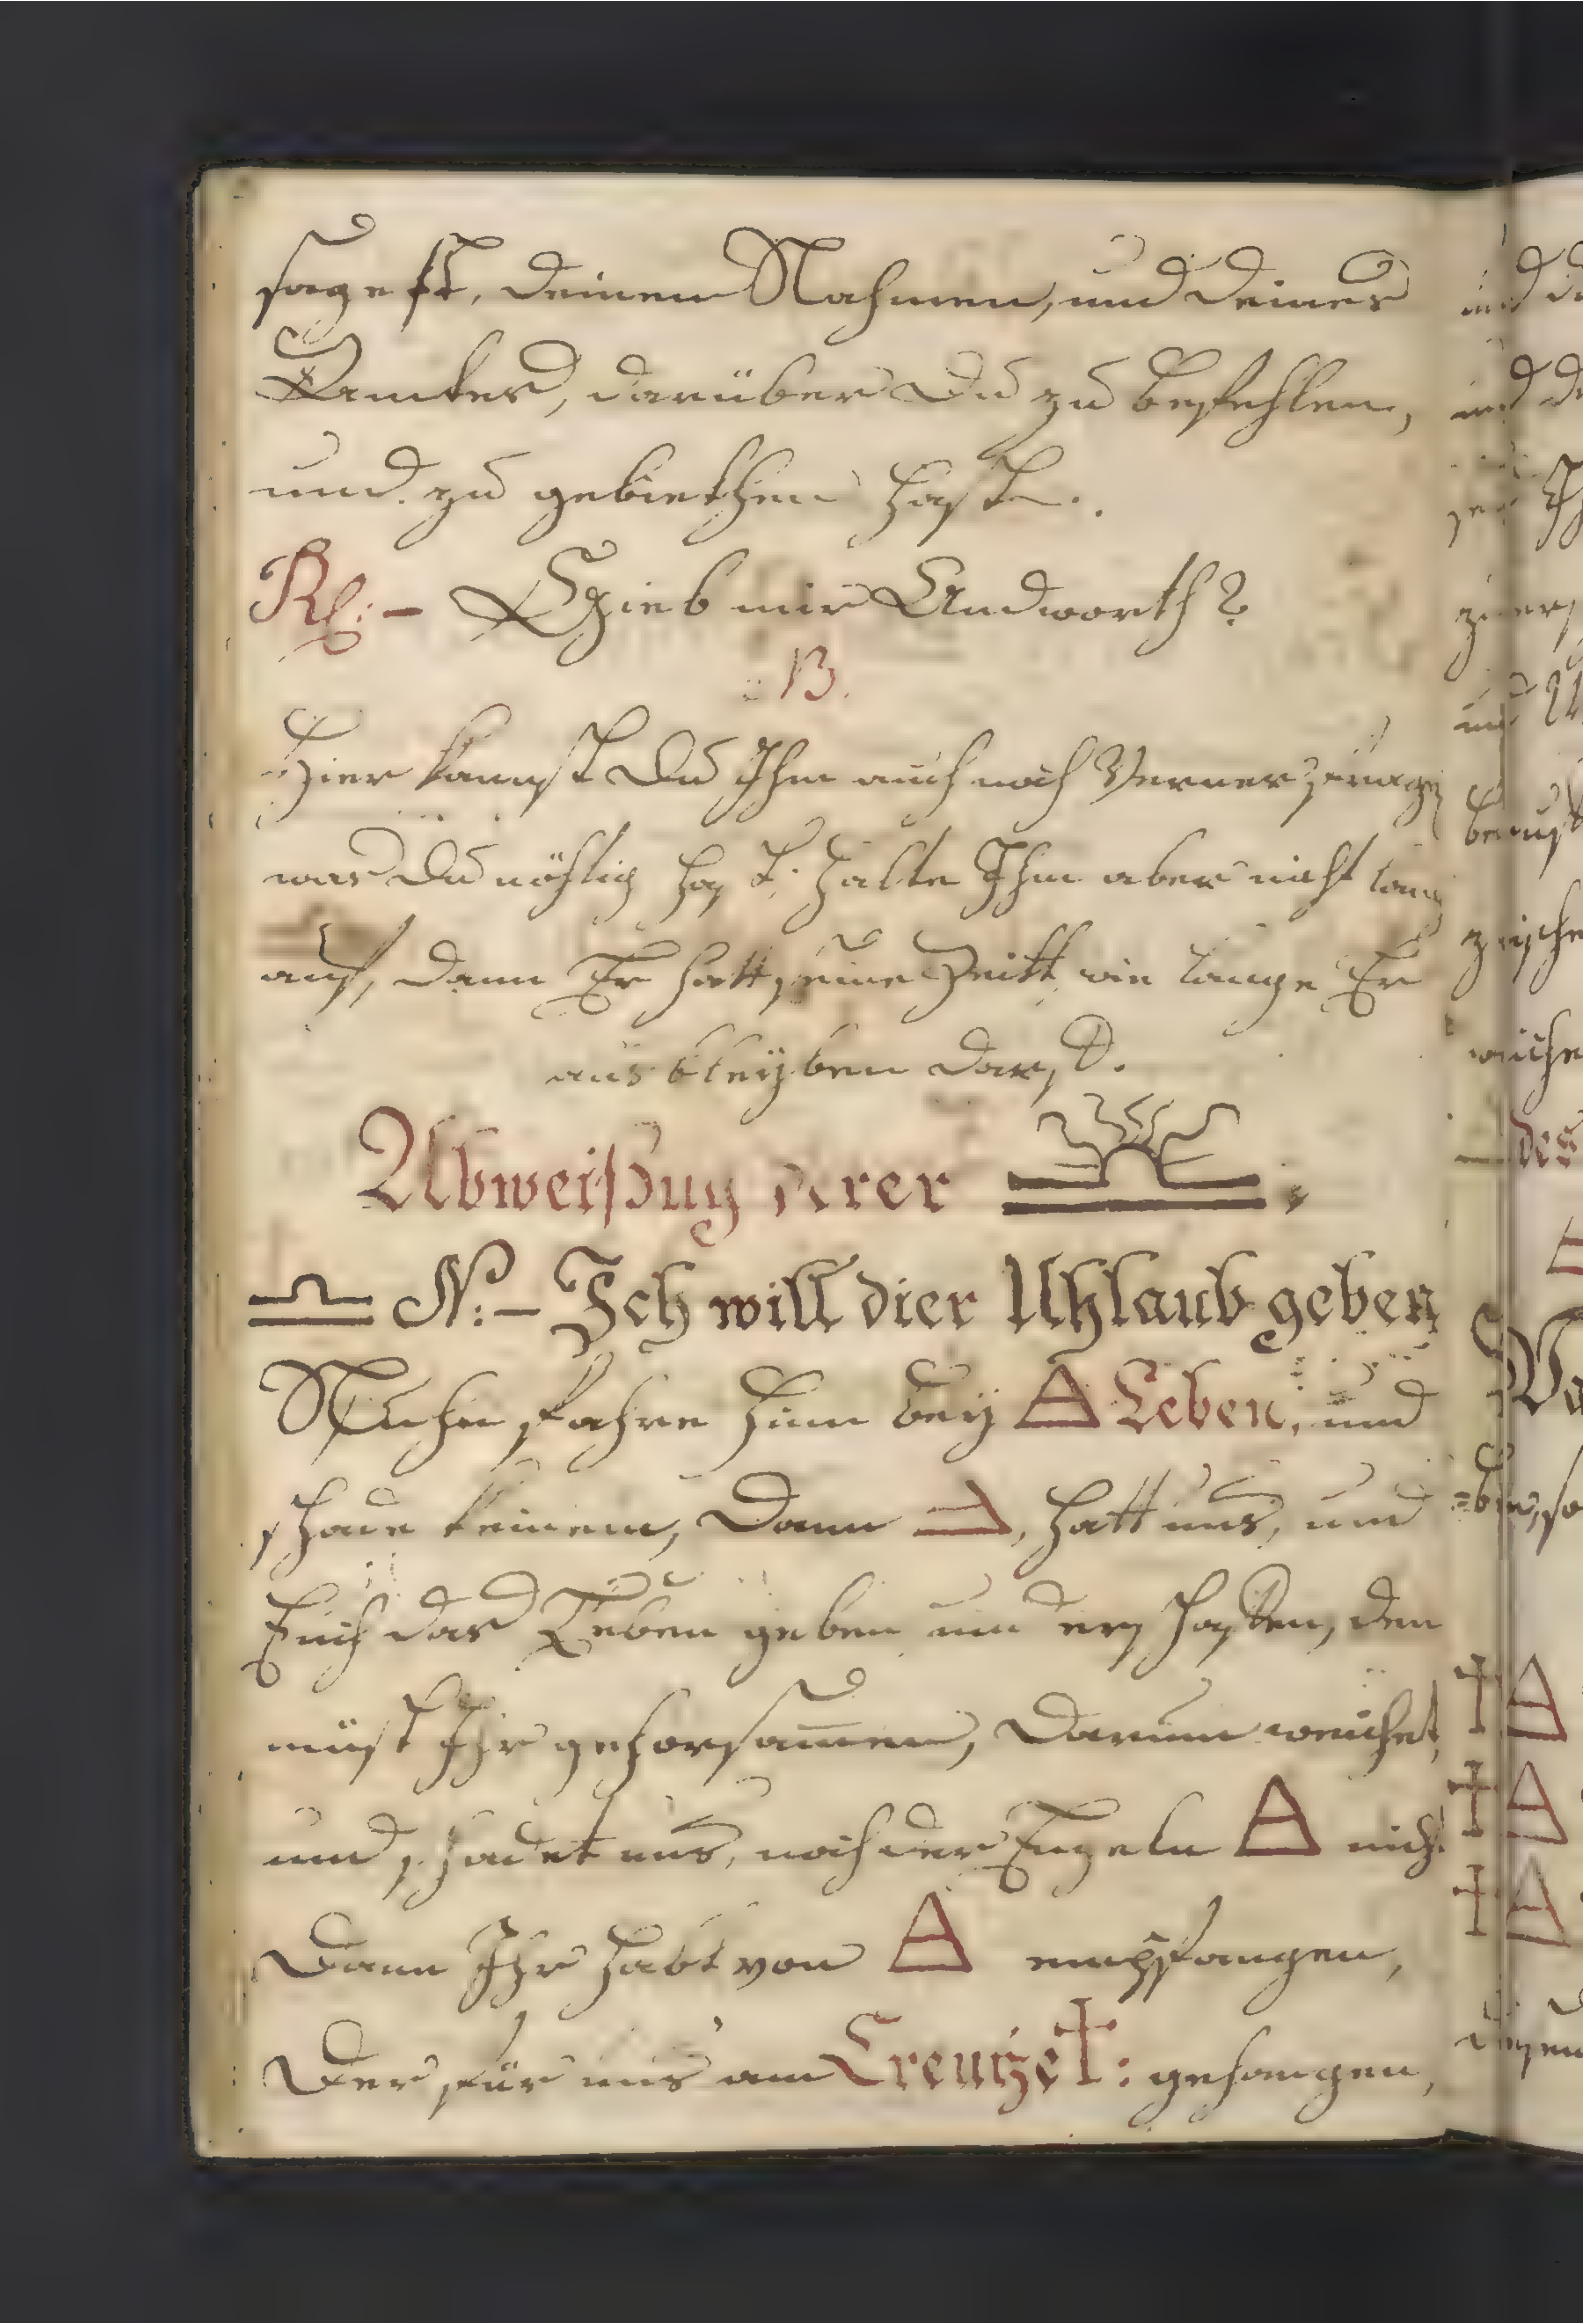 sagest, deinen Nahmen, und deines
Amtes, darüber du zu befehlen,
und zu gebiethen hast.
Rl: – Gieb mir Andworth?
: B.
Hier kanst du Ihm auch noch ferner
was du nöhtig hast. halte Ihm aber nicht lang
auf, dann Er hatt seine Zeitt, wie lange Er
aus bleyben darf.
Abweißung derer
♎ N: – Ich will dier Uhlaub geben
Nuhn fahre hinn bey Leben, und
schade keinem, dann hatt uns, und
Euch das Leben geben und erschaffen, dem
müst Ihr gehorsamen, darum weichet,
und schadet uns, noch der Engeln nicht
dann Ihr habt von empfangen,
der für uns am Creutze †: gehangen,